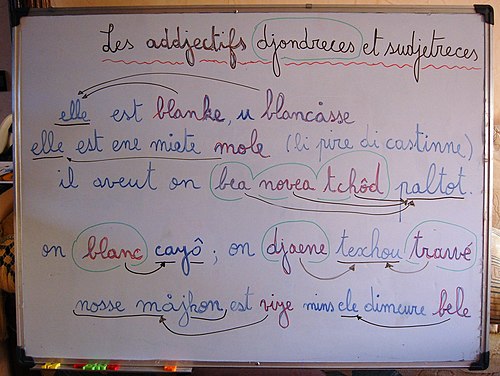 Les addjectifs djondreces et sudjetreces
elle est blanke, u blancåsse
elle est ene miete mole (li pire di castinne)
il aveut on bea novea tchôd paltot.
on blanc cayô ; on djaene texhou trawé
nosse måjhon, est vizje mins ele dimeure bele